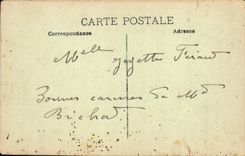 CARTE POSTALE
Correspondance Adresse
Melle
Bonnes caresses de Md
Bichod